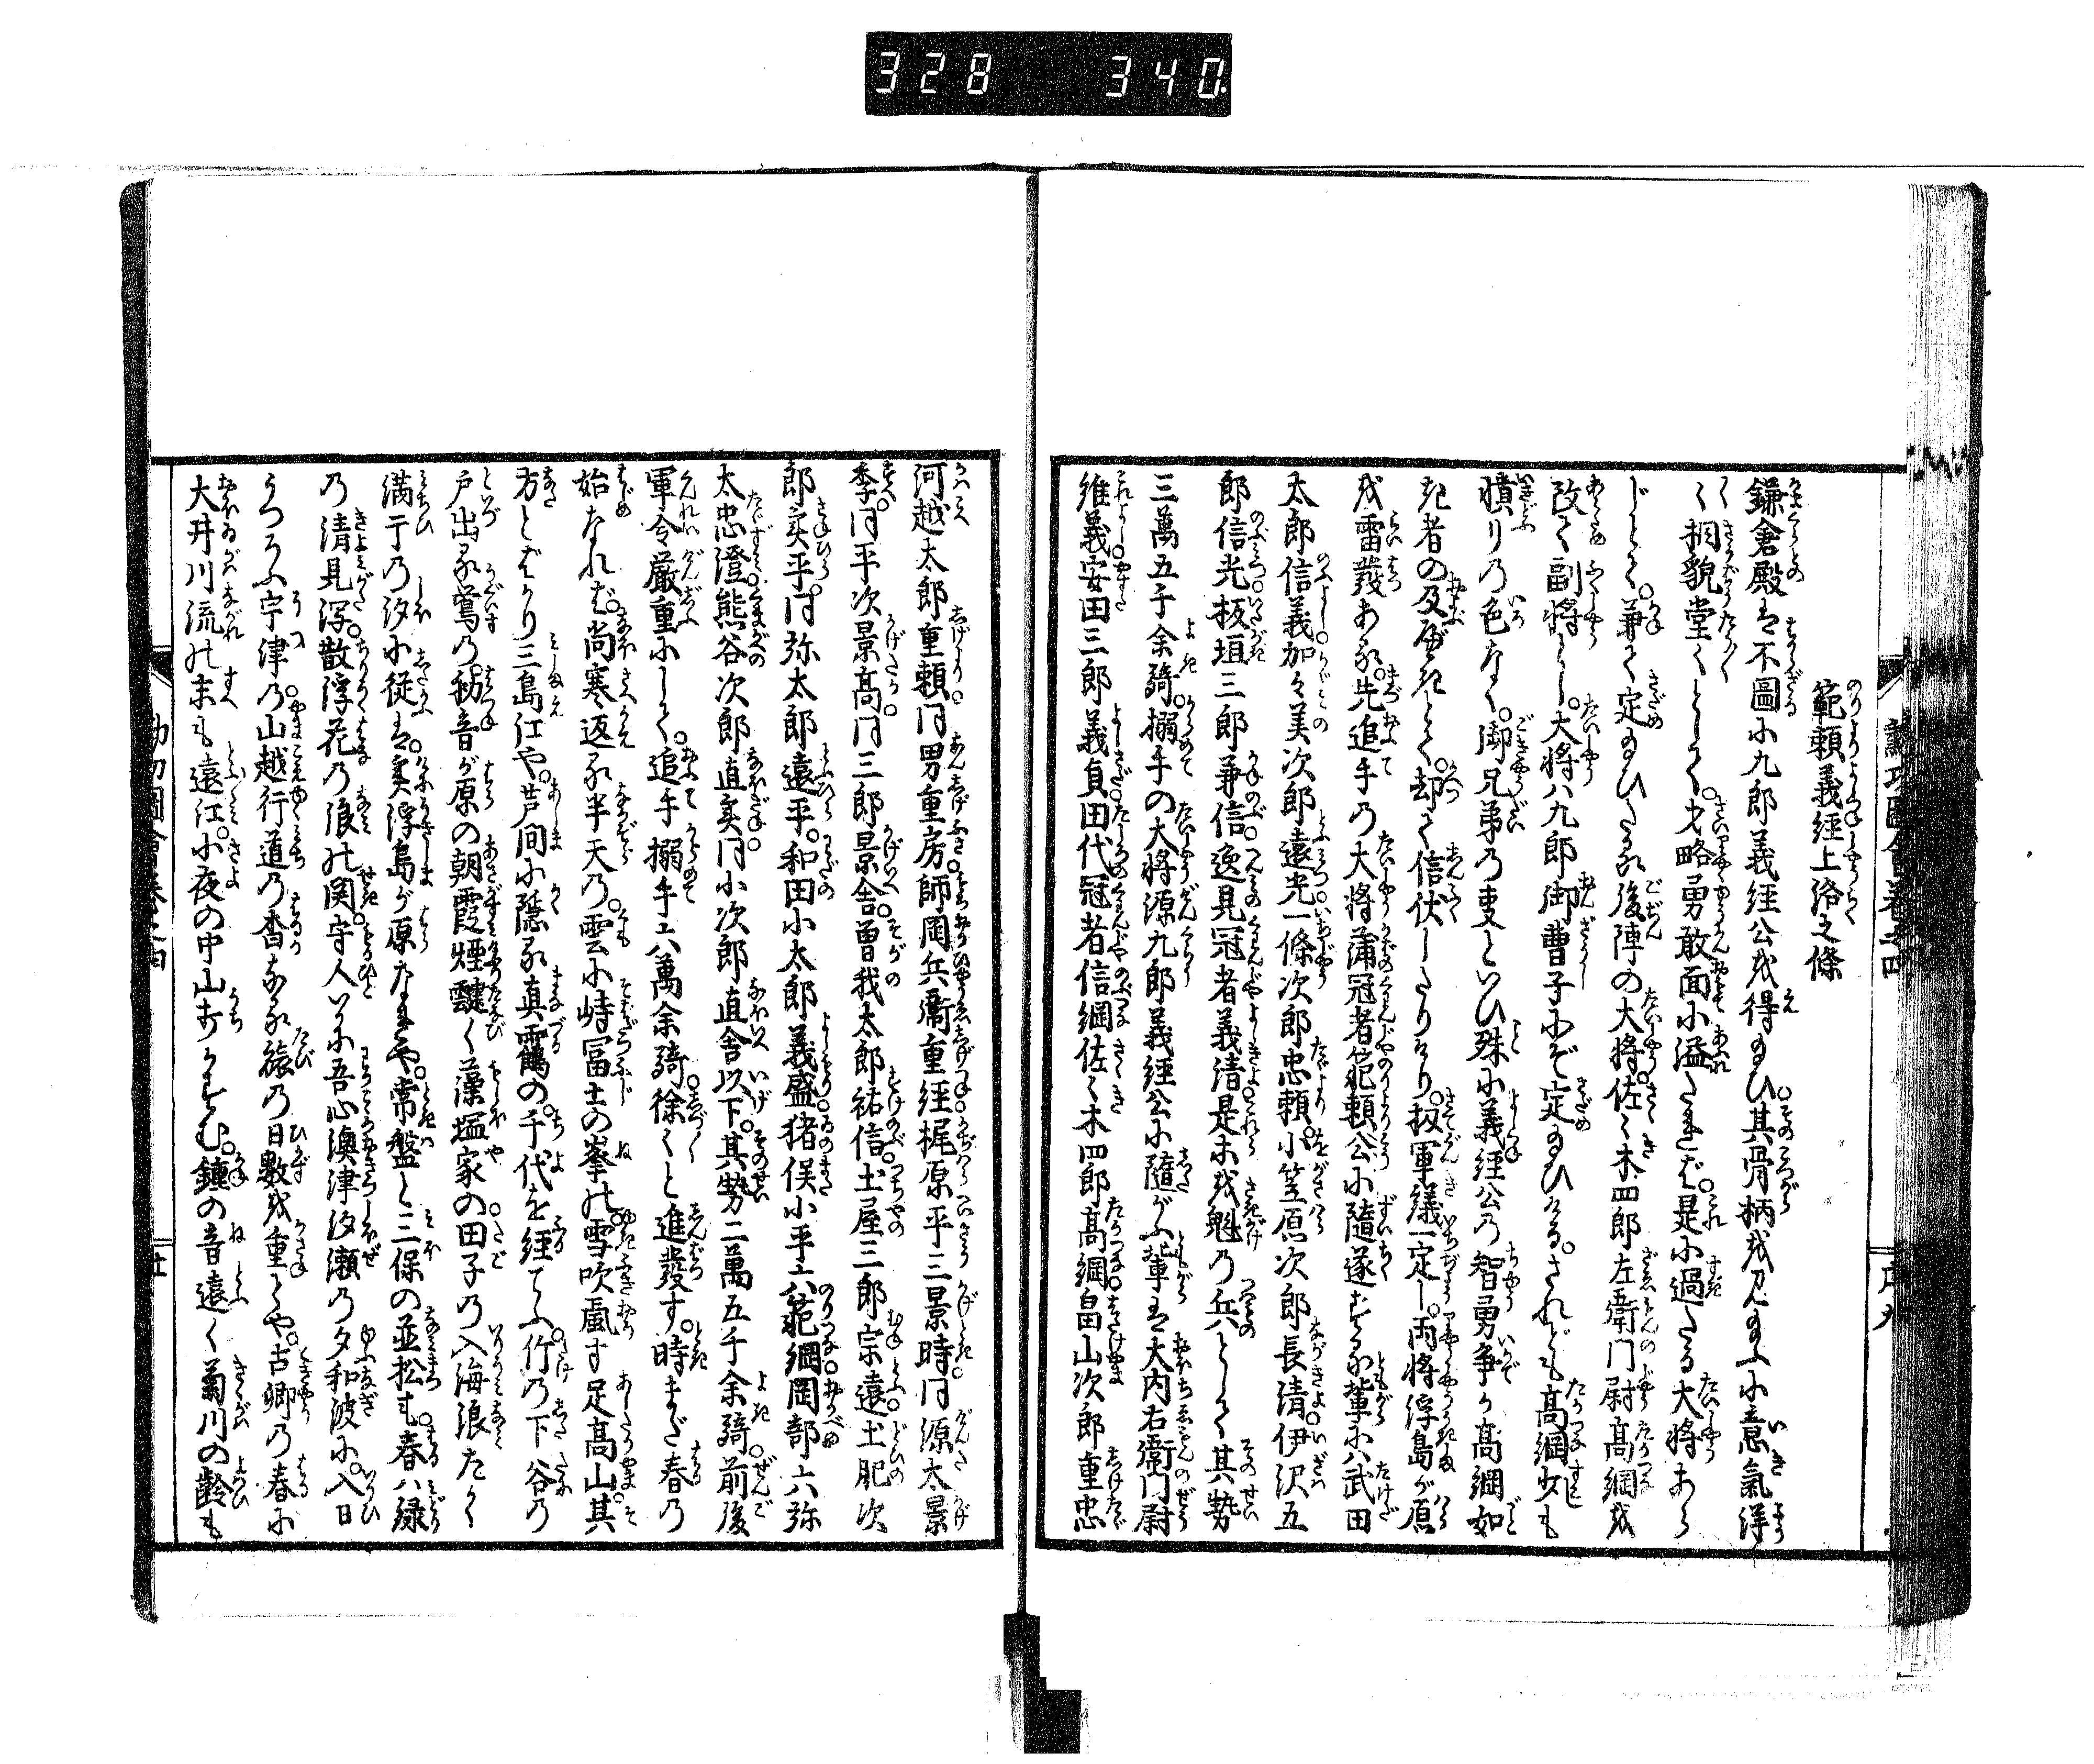 328 340
範頼義経上洛之條
鎌倉殿は不圖に九郎義経公を得給ひ。其骨柄を見給ふに意氣洋
〱相貌堂〱として。才略勇敢面に溢たれば。是に過たる大将あら
じとて。兼て定給ひたる後陣の大将佐〻木四郎左衛門尉高綱を
改て副将とし。大将ハ九郎御曹子にぞ定給ひける。されども高綱少も
憤りの色なく。御兄弟の事といひ殊に義経公の智勇争か高綱如
き者の及べきとて。却て信伏したりけり。扨軍議一定し。両将浮島が原
を雷發ある。先追手の大将蒲冠者範頼公に隨逐する輩にハ武田
太郎信義加〻美次郎遠光一條次郎忠頼。小笠原次郎長清伊沢五
郎信光板垣三郎兼信逸見冠者義清是等を魁の兵として其勢
三萬五千余騎。搦手の大将源九郎義経公に隨がふ輩は大内右衛門尉
維義安田三郎義貞田代冠者信綱佐〻木四郎高綱畠山次郎重忠
河越太郎重頼同男重房師岡兵衞重経梶原平三景時同源太景
季。同平次景髙同三郎景舎曽我太郎祐信土屋三郎宗遠土肥次
郎実平。同弥太郎遠平。和田小太郎義盛猪俣小平六範綱岡部六弥
太忠澄熊谷次郎直実同小次郎直舎以下。其勢二萬五千余騎前後
軍令厳重にして。追手搦手六萬余騎徐〱と進發す。時まだ春の
始なれば。尚寒返る半天の。雲に峙冨士の峯の雪吹颪す足高山。其
方とばかり三島江や。芦間に隠る真鶴の。千代を経てふ竹の下谷の
戸出る鴬の。初音が原の朝霞煙靆く藻塩家の田子の入海浪たかく
満干の汐に従は。実浮島が原なれや。常盤と三保の並松も。春ハ緑
の清見潟。散浮花の浪の関守人いかに吾心澳津汐瀬の夕和波に。入日
うつろふ宇津の山越行道の杳なる旅の日數を重とや。古郷の春に
大井川流の末も遠江。小夜の中山打こむ。鐘の音遠く菊川の齢も